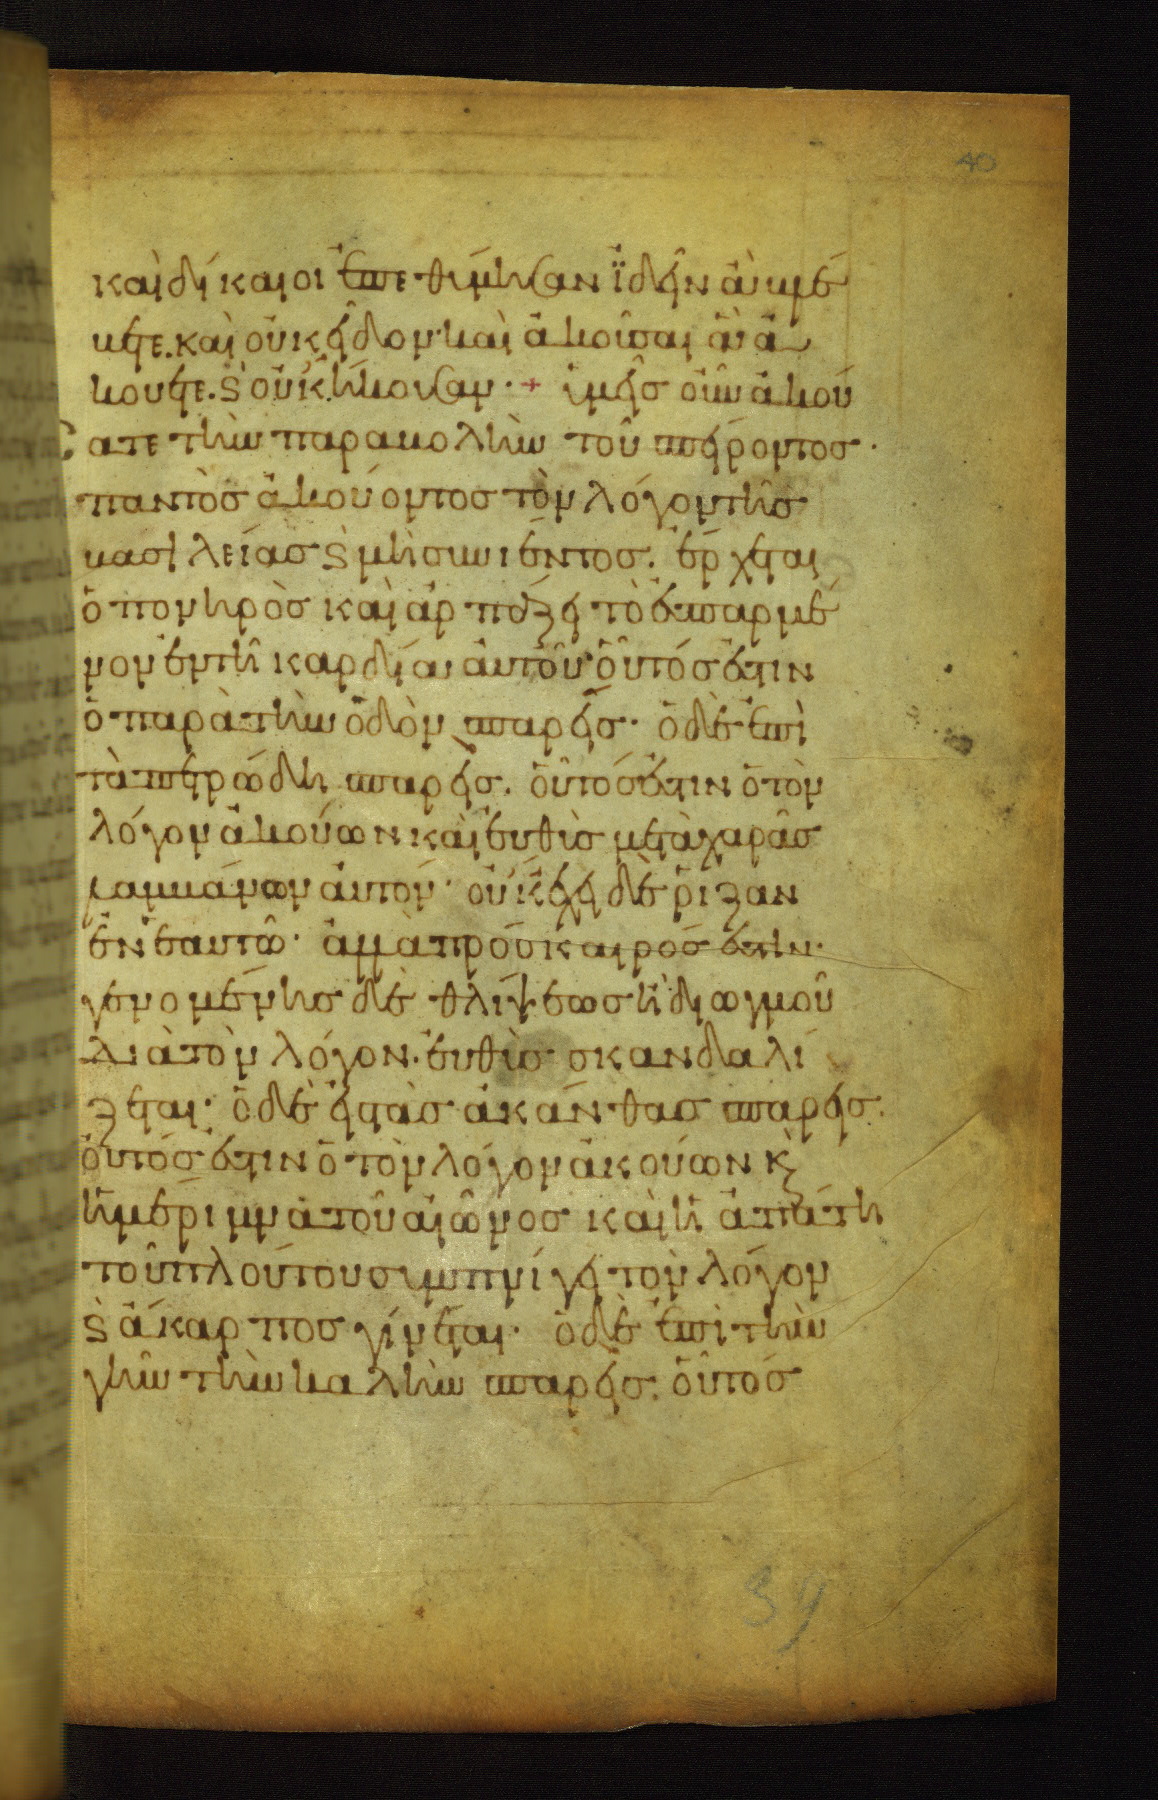 40
καὶ δίκαιοι ἐπεθύμησαν ἰδεῖν ἃ βλέ
πετε. καὶ οὐκ εἶδον· καὶ ἀκοῦσαι ἃ ἀ
κούετε. ϗ οὐκ ἤκουσαν · + ὑμεῖς οὖν ἀκού
σατε τὴν παραβολὴν τοῦ σπείροντος ·
παντὸς ἀκούοντος τὸν λόγον τῆς
βασιλείας ϗ μὴ συνιέντος. ἔρχεται
ὁ πονηρὸς καὶ ἁρπάζει τὸ ἐσπαρμέ
νον ἐν τῇ καρδίᾳ αὐτοῦ· οὗτός ἐστιν
ὁ παρὰ τὴν ὁδὸν σπαρείς · ὁ δὲ ἐπὶ
τὰ πετρώδη σπαρείς. οὗτός ἐστιν ὁ τὸν
λόγον ἀκούων καὶ εὐθὺς μετὰ χαρᾶς
λαμβάνων αὐτόν · οὐκ ἔχει δὲ ῥίζαν
ἐν ἑαυτῷ · ἀλλὰ πρόσκαιρός ἐστιν ·
γενομένης δὲ θλίψεως ἢ διωγμοῦ
διὰ τὸν λόγον · εὐθὺς σκανδαλί
ζεται · ὁ δὲ εἰς τὰς ἀκάνθας σπαρείς.
οὗτός ἐστιν ὁ τὸν λόγον ἀκούων ϗ
ἡ μέριμνα τοῦ αἰῶνος καὶ ἡ ἀπάτη
τοῦ πλούτου συμπνίγει τὸν λόγον
ϗ ἄκαρπος γίνεται · ὁ δὲ ἐπὶ τὴν
γῆν τὴν καλὴν σπαρείς. οὗτός
39